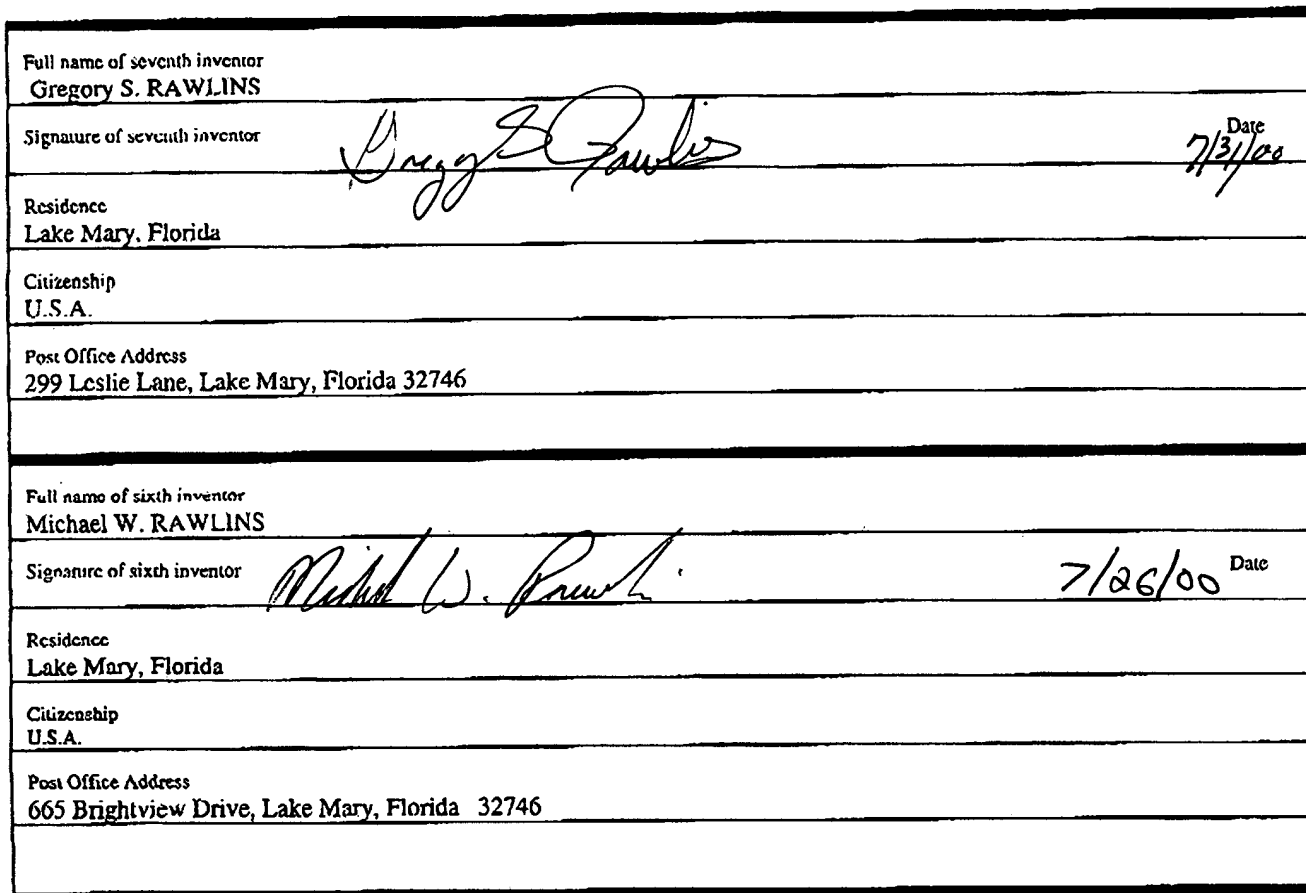 Full name of seventh inventor
Gregory S. RAWLINS
Signature of seventh inventor
Gregory S Rawlins
Date
7/31/00
Residence
Lake Mary, Florida
Citizenship
U.S.A.
Post Office Address
299 Leslie Lane, Lake Mary, Florida 32746
Full name of sixth inventor
Michael W. RAWLINS
Signature of sixth inventor
Michael W. Rawlins
7/26/00 Date
Residence
Lake Mary, Florida
Citizenship
U.S.A.
Post Office Address
665 Brightview Drive, Lake Mary, Florida 32746